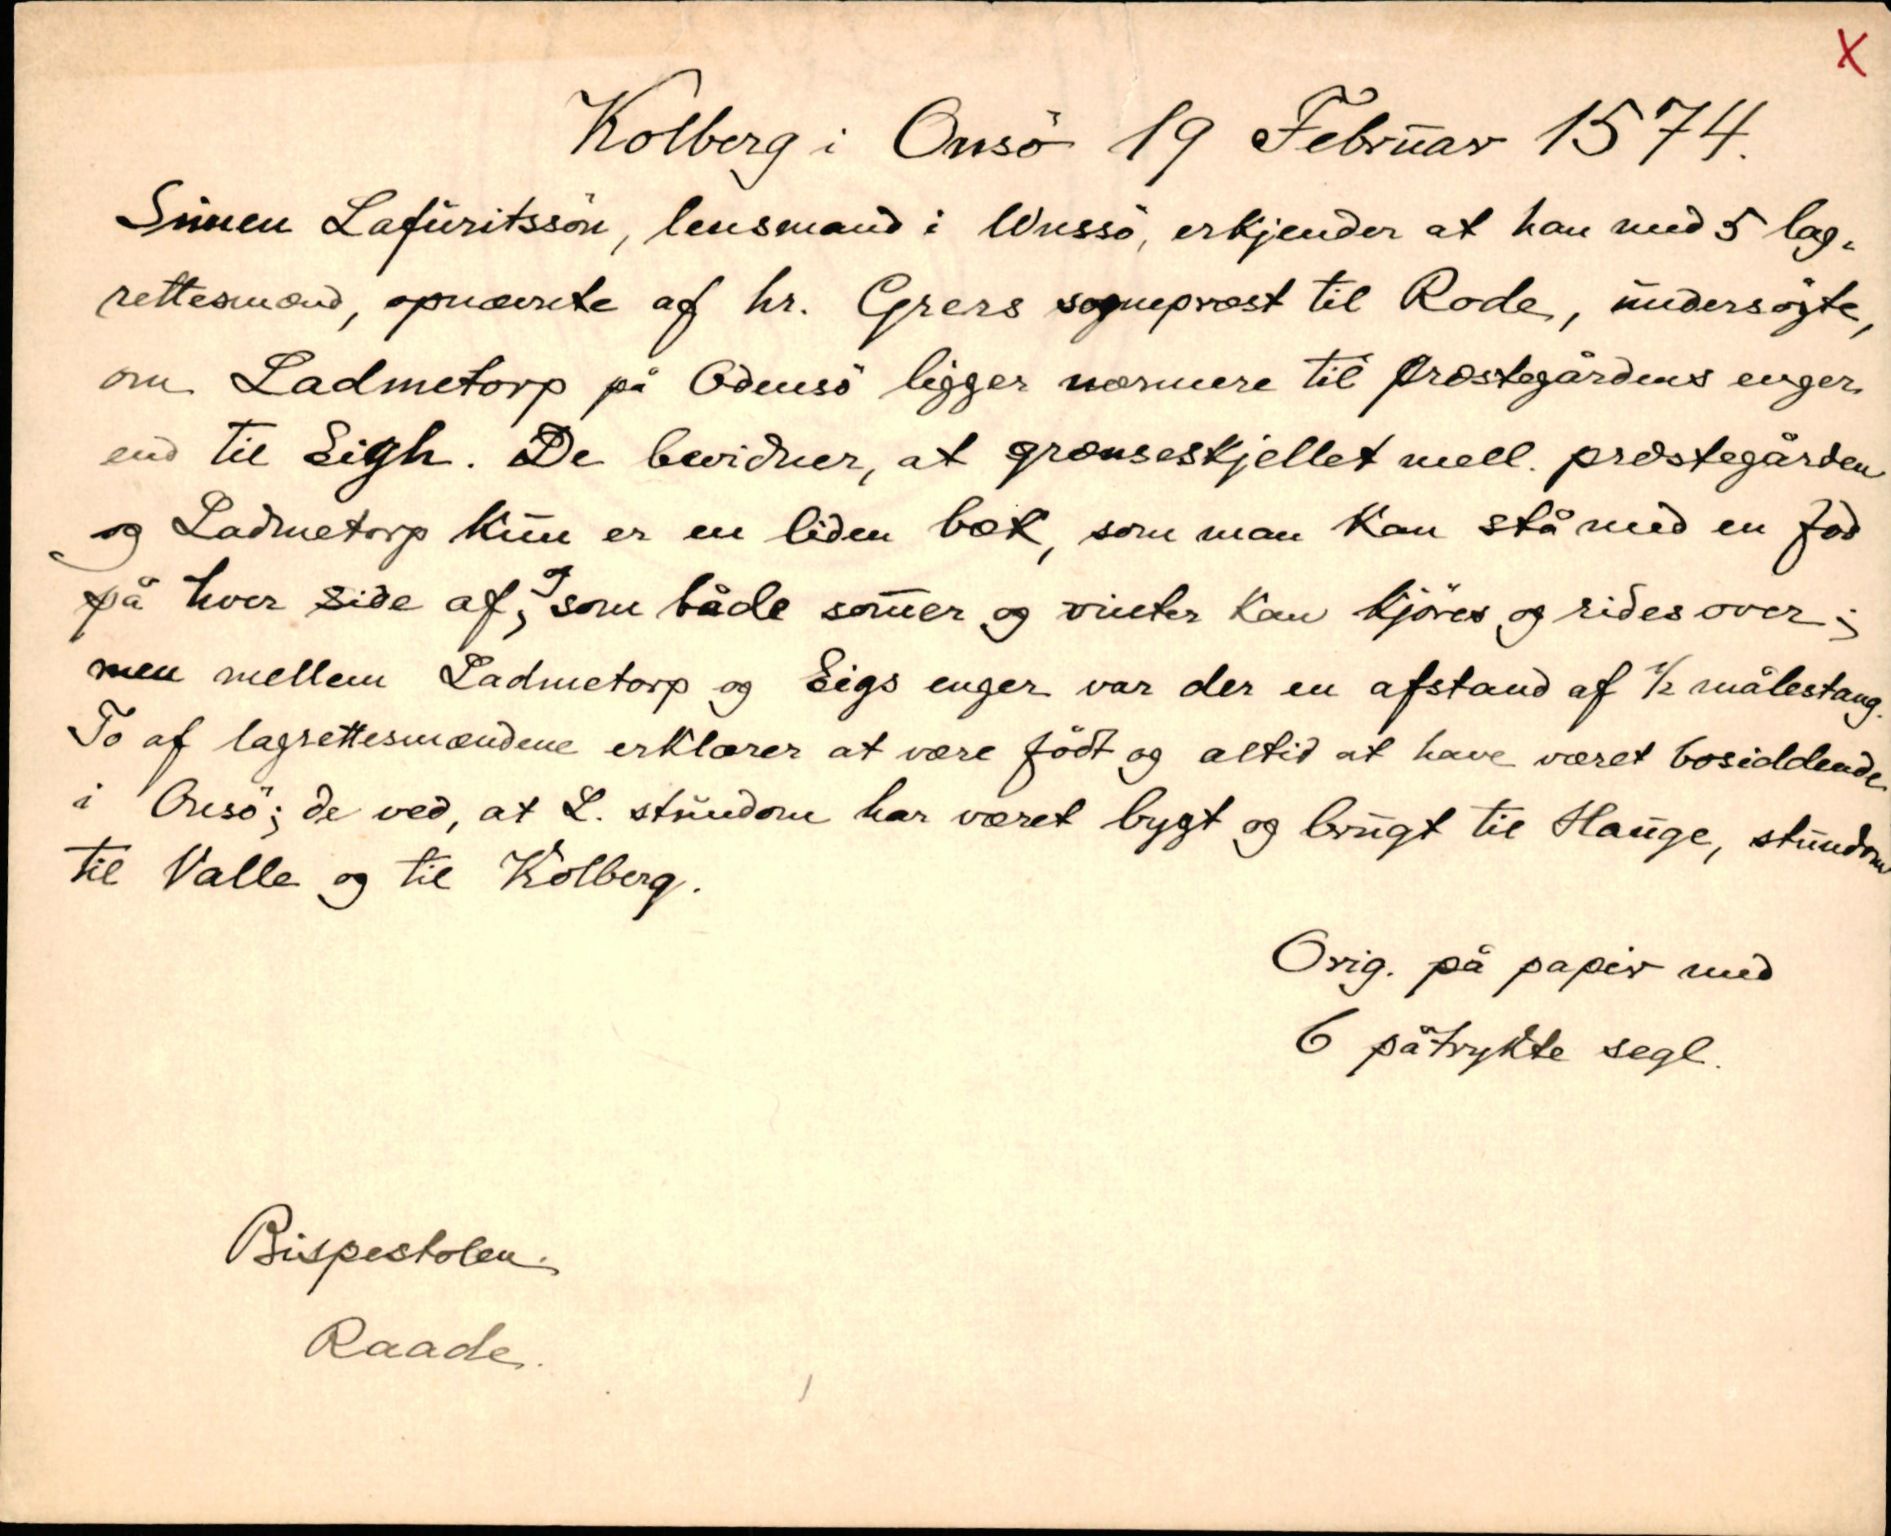 X
Kolberg i Onsö 19 Februar 1574.
Simen Lafuritssön, lensmand i Wnssö, erkjender at han med 5 lag-
rettesmænd, opnævnte af hr. Grers sogneprest til Rode, undersøgte,
om Ladmetorp på Odensö ligger nærmere til Præstegårdens enger
end til Eigh. De bevidner, at grænseskjellet mell. præstegården
og Ladmetorp kun er en liden bæk, som man kan stå med en fod
på hver side af, og som både som̄er og vinter kan kjöres og rides over;
men mellem Ladmetorp og Eigs enger var der en afstand af 1/2 målestang.
To af lagrettesmændene erklærer at være födt og altid at have været bosiddende
i Onsö; de ved, at L. stundom har været bygt og brugt til Hauge, stundom
til Valle og til Kolberg.
Orig. på papir med
6 påtrykte segl.
Bispestolen.
Raade.